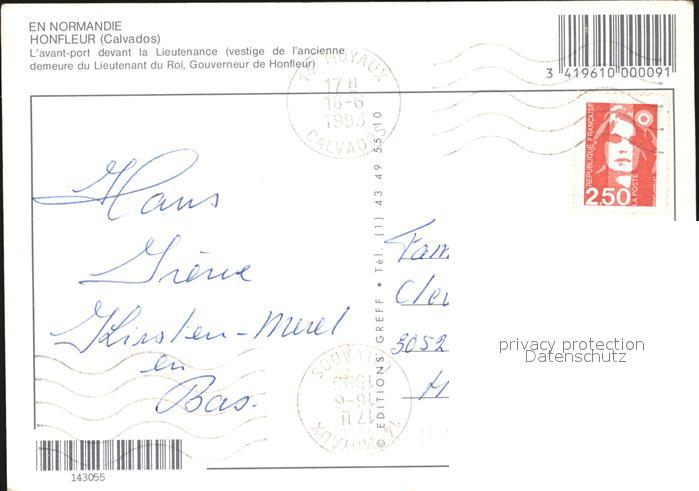 EN NORMANDIE
HONFLEUR (Calvados)
L'avant-port devant la Lieutenance (vestige de l'ancienne
demeure du Lieutenant du Roi, Gouverneur de Honfleur)
3 419610 000091
14 MOYAUX
17 H
16-6
1993
CALVADOS
REPUBLIQUE FRANÇAISE
2,50
LA POSTE
Hans
Irène
Kirsten-Merel
en
Bas.
© EDITIONS GREFF • Tél. (1) 43 49 55 10
Fam
Cle
3052
H
privacy protection
Datenschutz
14 MOYAUX
17 H
16-6
1993
CALVADOS
143055